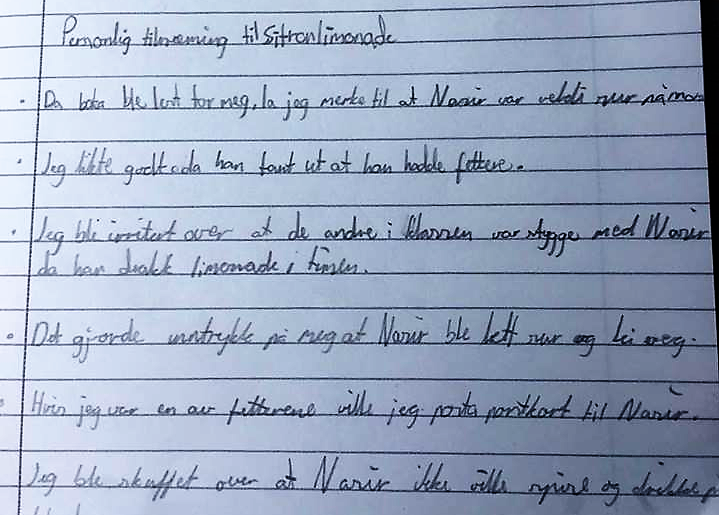 Personlig tilnæming til Sitronlimonade
Da boka ble lest for meg, la jeg merke til at Nasir var veldi sur på
Jeg likte godt da han fant ut at han hadde fettere.
Jeg bli irritert over at de andre i klassen var stygge med Nasir
da han drakk limonade i timen.
Det gjorde unntrykk på meg at Nasir ble lett sur og lei seg.
Hvis jeg var en av fetterene ville jeg posta postkort til Nasir.
Jeg ble skuffet over at Nasir ikke ville spise og drikke